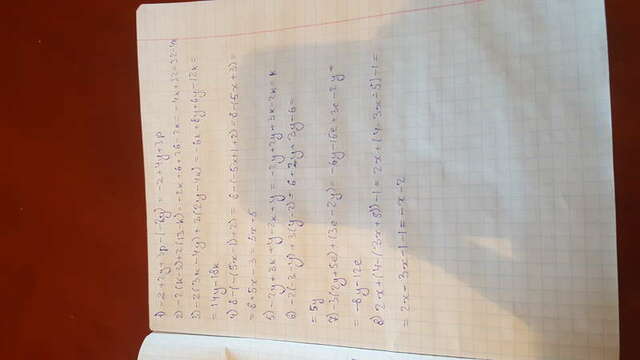 1) -2 + 2y + 3p - (-2y) = -2 + 4y + 3p
2) -2(k-3) + 2(13-k) = -2k + 6 + 26 - 2k = -4k + 32 = 32-4k
3) -2(3k - 4y) + 3(2y - 4k) = -6k + 8y + 6y - 12k =
= 14y - 18k
4) 6 - (-(5x-1) + 2) = 6 - (-5x + 1 + 2) = 6 - (-5x + 3) =
= 6 + 5x - 3 = 5x + 5
5) -2y + 3k + y - 2k + y = -2y + 2y + 3k - 2k = k
6) -2(-3-y) + 3(y-2) = 6 + 2y + 3y - 6 =
= 5y
7) -3(2y + 5e) + (3e - 2y) = -6y - 15e + 3e - 2y =
= -8y - 12e
8) 2x + (4 - (3x + 5)) - 1 = 2x + (4 - 3x - 5) - 1 =
= 2x - 3x - 1 - 1 = -x - 2